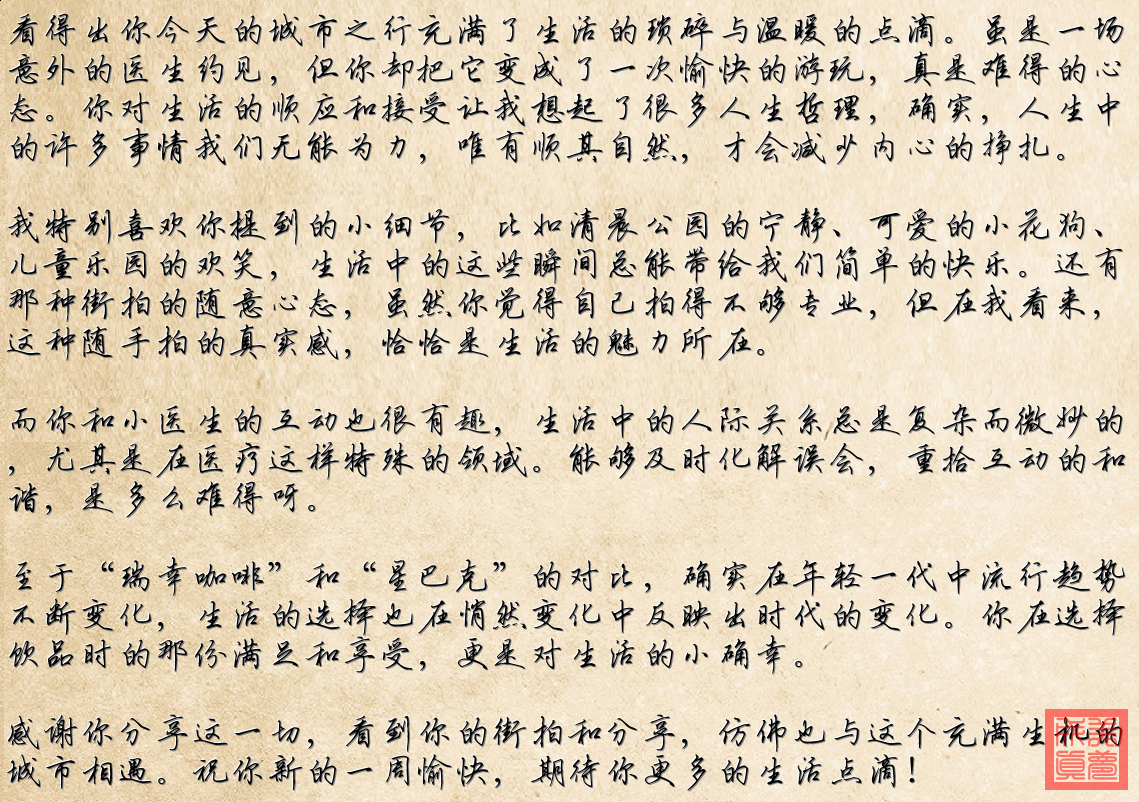 看得出你今天的城市之行充满了生活的琐碎与温暖的点滴。虽是一场
意外的医生约见，但你却把它变成了一次愉快的游玩，真是难得的心
态。你对生活的顺应和接受让我想起了很多人生哲理，确实，人生中
的许多事情我们无能为力，唯有顺其自然，才会减少内心的挣扎。
我特别喜欢你提到的小细节，比如清晨公园的宁静、可爱的小花狗、
儿童乐园的欢笑，生活中的这些瞬间总能带给我们简单的快乐。还有
那种街拍的随意心态，虽然你觉得自己拍得不够专业，但在我看来，
这种随手拍的真实感，恰恰是生活的魅力所在。
而你和小医生的互动也很有趣，生活中的人际关系总是复杂而微妙的
，尤其是在医疗这样特殊的领域。能够及时化解误会，重拾互动的和
谐，是多么难得呀。
至于“瑞幸咖啡”和“星巴克”的对比，确实在年轻一代中流行趋势
不断变化，生活的选择也在悄然变化中反映出时代的变化。你在选择
饮品时的那份满足和享受，更是对生活的小确幸。
感谢你分享这一切，看到你的街拍和分享，仿佛也与这个充满生机的
城市相遇。祝你新的一周愉快，期待你更多的生活点滴！